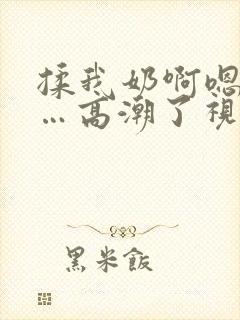 揉我奶啊嗯
…高潮了视
黑米飯